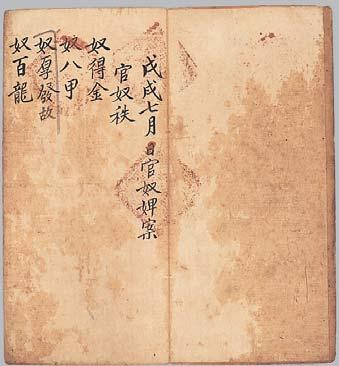 戊戌七月日官奴婢案
官奴秩
奴得金
奴八甲
奴厚發故
奴百龍